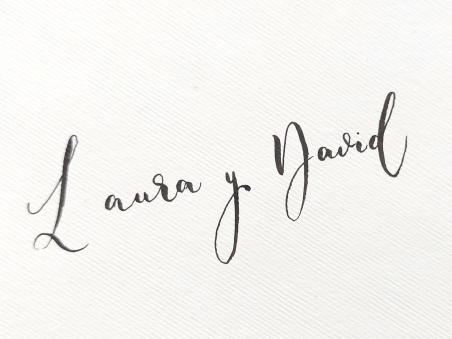 Laura y David